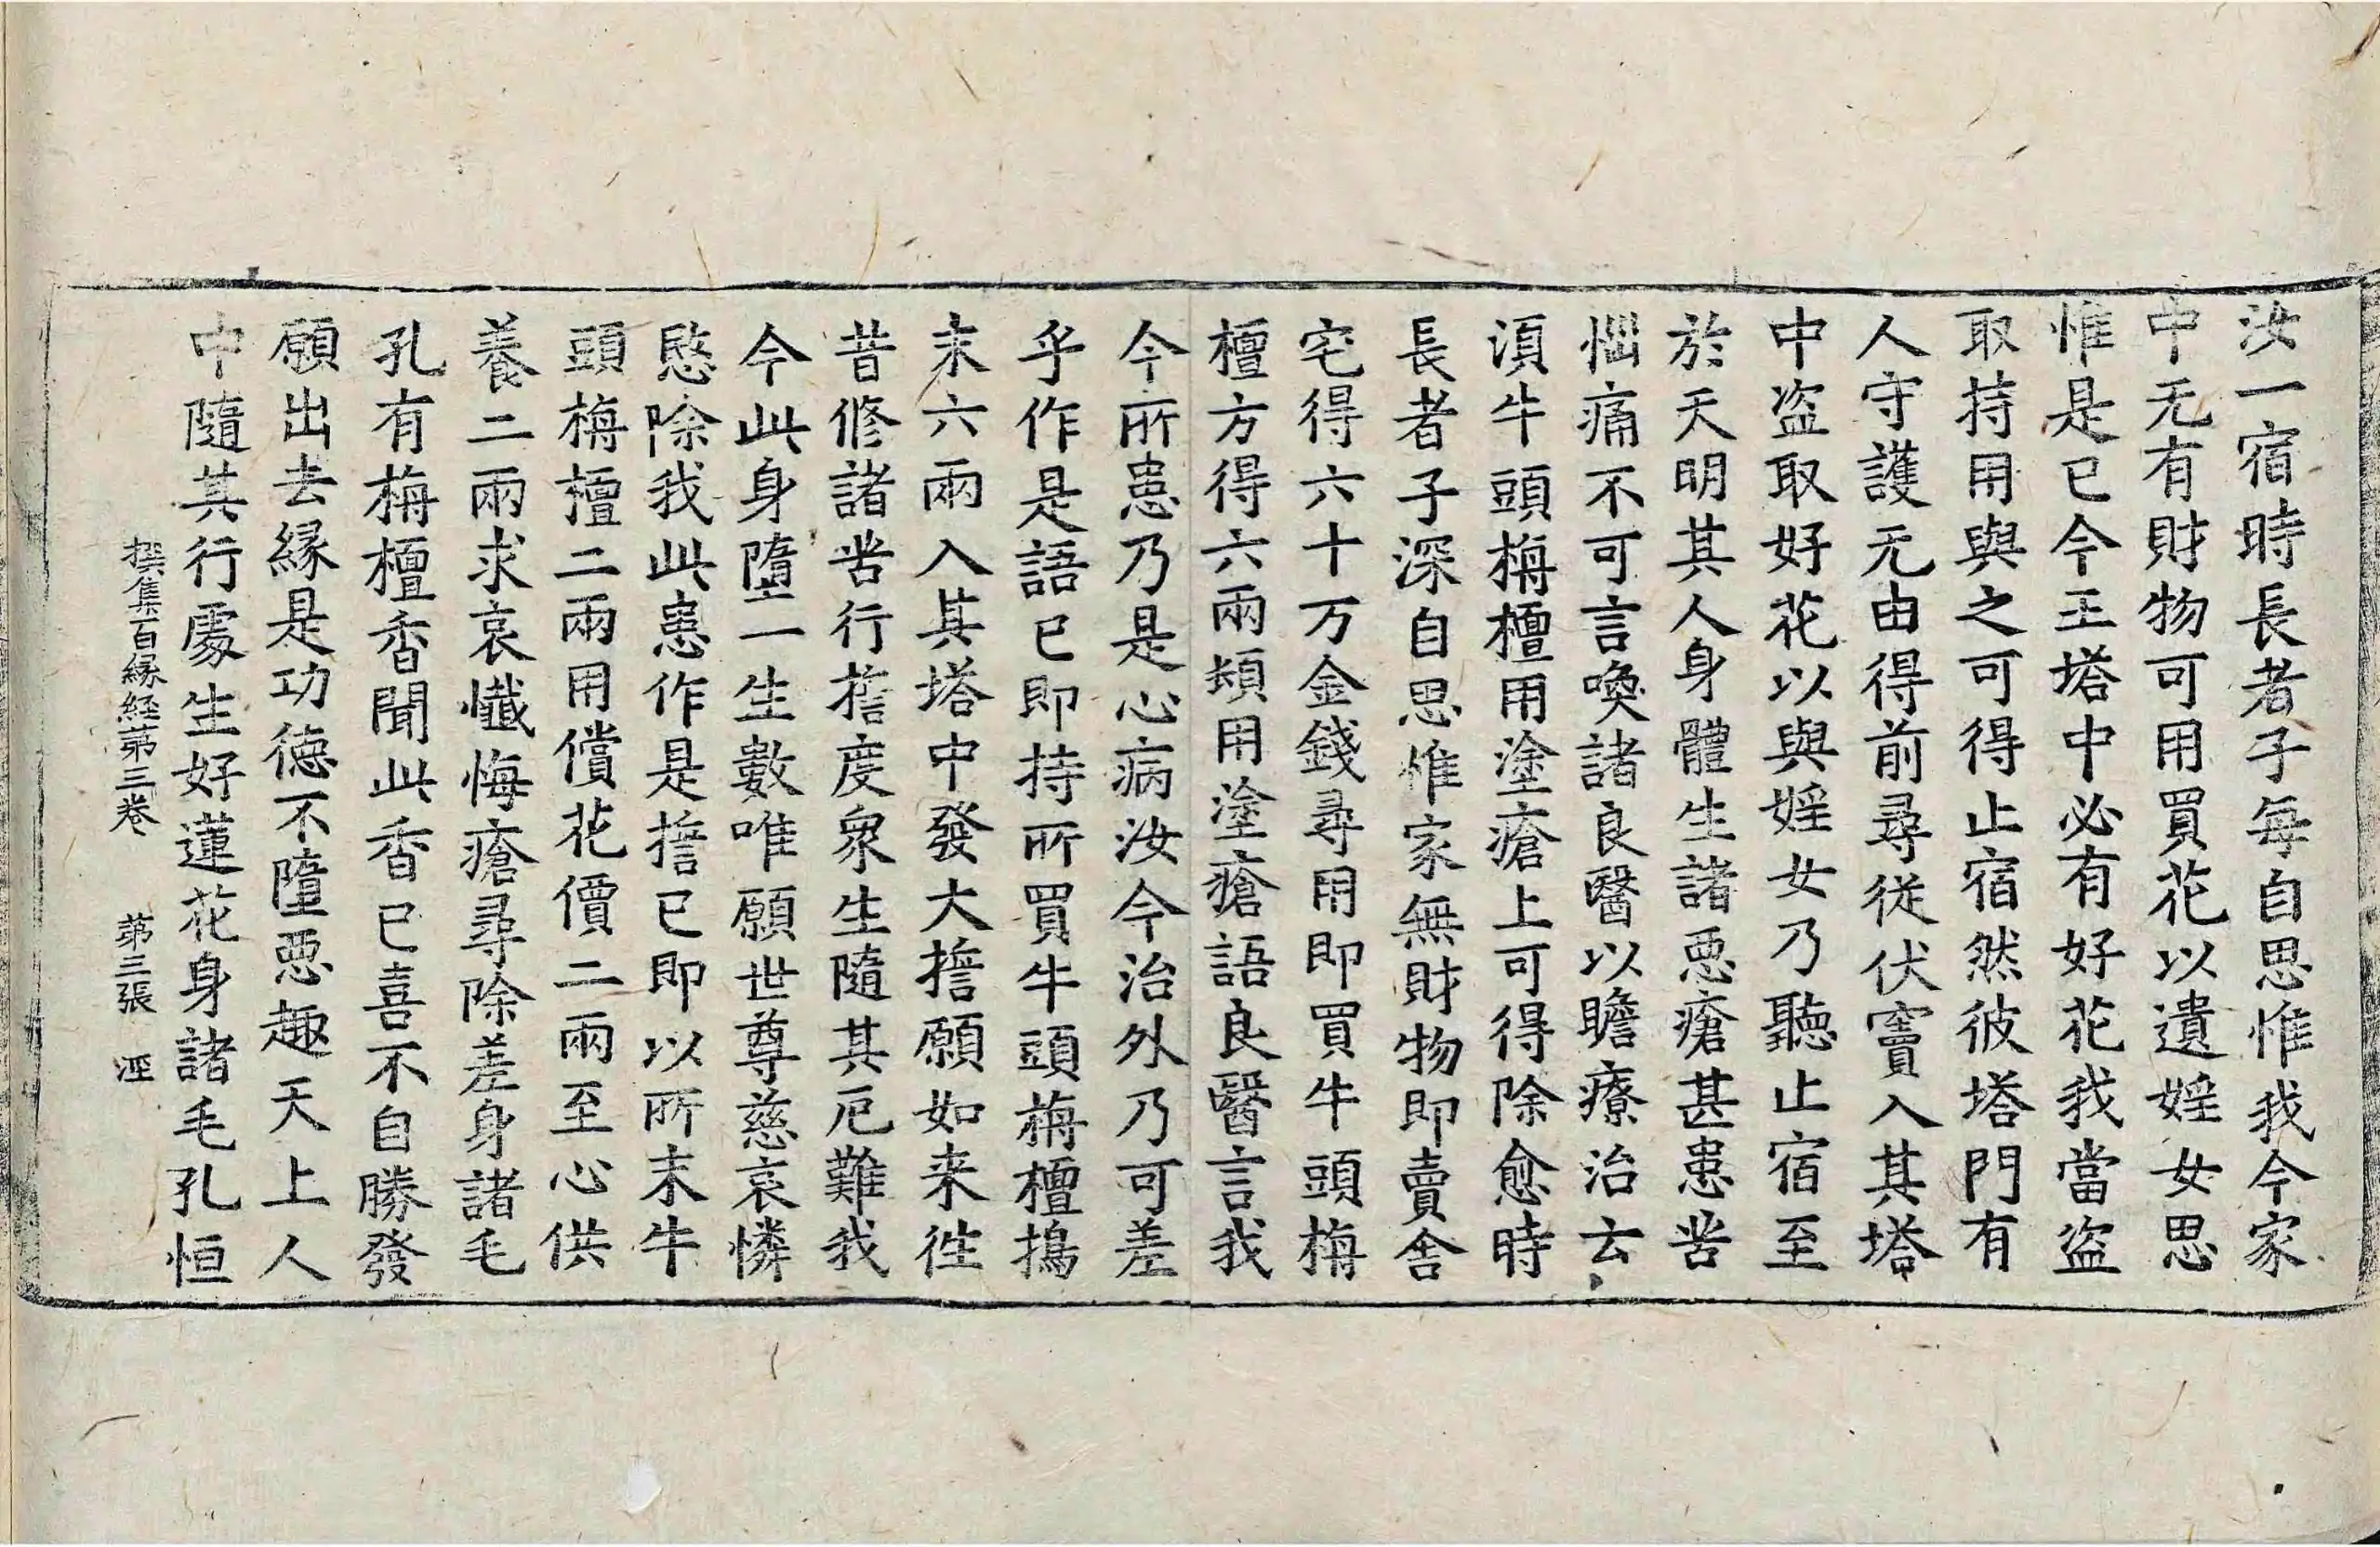 汝一宿時長者子每自思惟我今家
中无有財物可用買花以遺婬女思
惟是已今王塔中必有好花我當盗
取持用與之可得止宿然彼塔門有
人守護无由得前尋從伏竇入其塔
中盗取好花以與婬女乃聽止宿至
於天明其人身體生諸惡瘡甚患苦
惱痛不可言喚諸良醫以瞻療治云
湏牛頭栴檀用塗瘡上可得除愈時
長者子深自思惟家無財物即賣舍
宅得六十万金錢尋用即買牛頭栴
檀方得六兩規用塗瘡語良醫言我
今所患乃是心病汝今治外乃可差
乎作是語已即持所買牛頭栴檀搗
末六兩入其塔中發大擔願如来徃
昔修諸苦行擔度衆生隨其厄難我
今此身墮一生數唯願世尊慈哀憐
愍除我此患作是擔已即以所末牛
頭栴檀二兩用償花價二兩至心供
養二兩求哀懺悔瘡尋除差身諸毛
孔有栴檀香聞此香已喜不自勝發
願出去縁是功徳不墮惡趣天上人
中隨其行處生好蓮花身諸毛孔恒
撰集百縁経苐三卷 苐三張 㴇